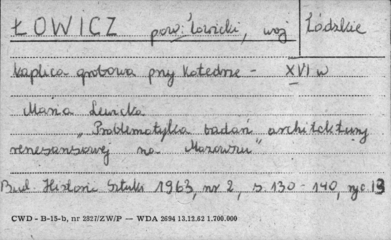 ŁOWICZ pow. Łowicki, woj Łódzkie
kaplica grobowa przy Katedrze - XVI w
Maria Lewicka
"Problematyka badań architektury
renesansowej na Mazowszu"
Biul. Historii Sztuki 1963, nr 2, s. 130-140, ryc. 13
CWD - B-15-b, nr 2827/ZW/P — WDA 2694 13.12.62 1.700.000